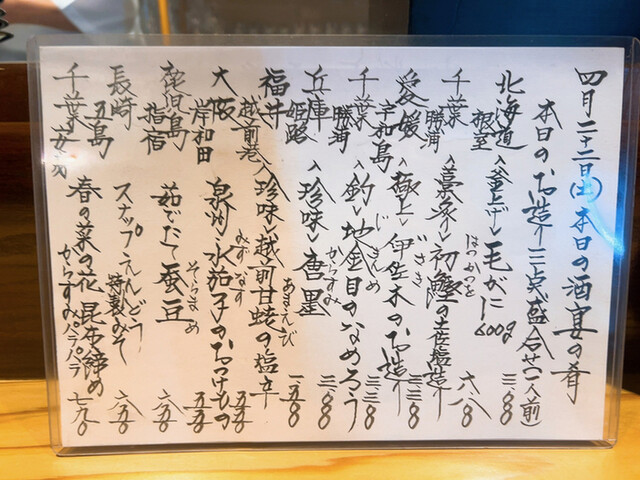 四月二十二日(土)本日の酒宴の肴
本日のお造り三点盛合せ(一人前)
北海道 根室 〈釜上げ〉毛がに 600g 三三〇〇
千葉 勝浦 〈藁炙り〉初鰹の土佐塩造り 一六八〇
はつがつを
愛媛 宇和島 〈極上〉伊佐木のお造り 三三〇
いさき
千葉 勝浦 〈釣り〉地金目のなめろう
じきんめ
兵庫 姫路 〈珍味〉唐墨
からすみ
福井 越前港 〈珍味〉越前甘蛯の塩辛 五五〇
あまえび
大阪 岸和田 泉州・水茄子のおつけもの 五五〇
みずなす
鹿児島 指宿 茹でたて蚕豆 六五〇
そらまめ
長崎 五島 スナップえんどう 特製みそ 六五〇
千葉 安房 春の菜の花 昆布締め からすみパラパラ 七五〇